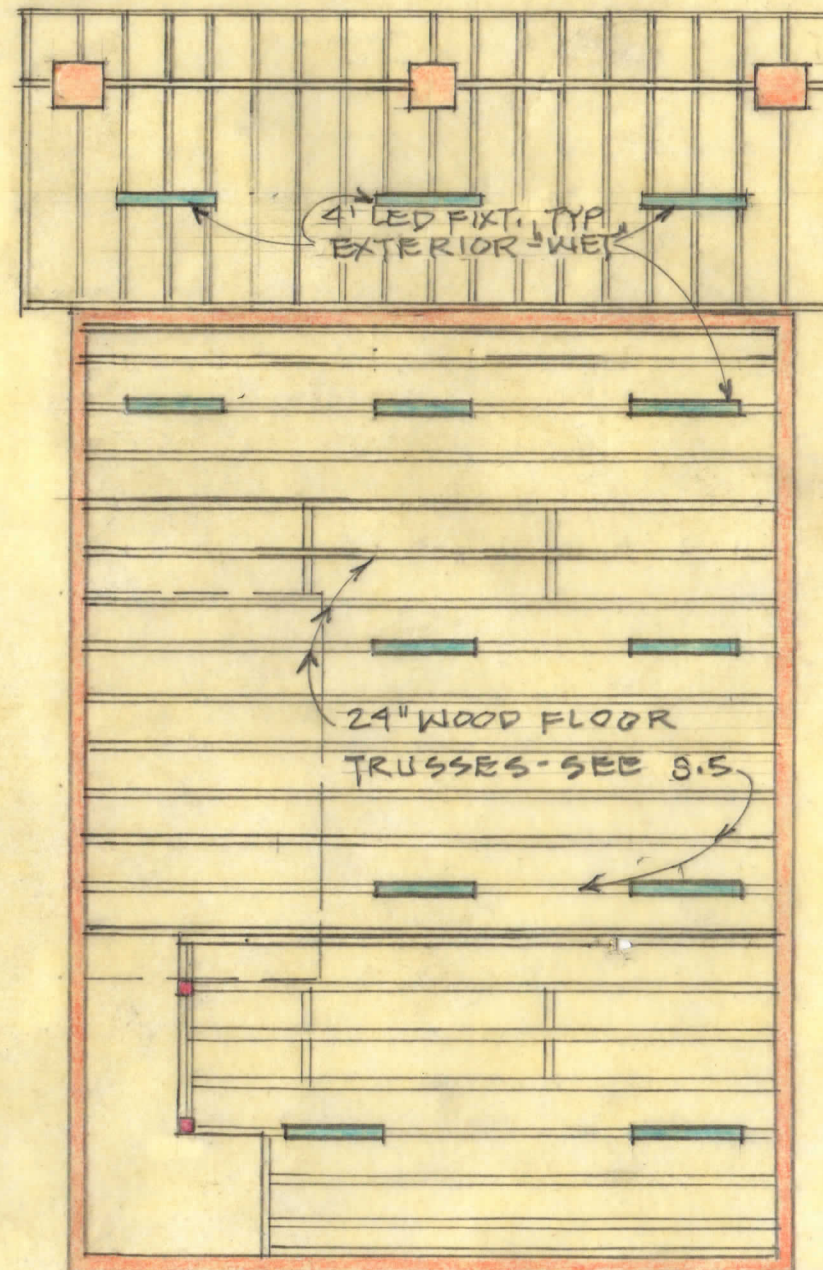 4' LED FIXT., TYP.
EXTERIOR-"WET"
24" WOOD FLOOR
TRUSSES-SEE S.5